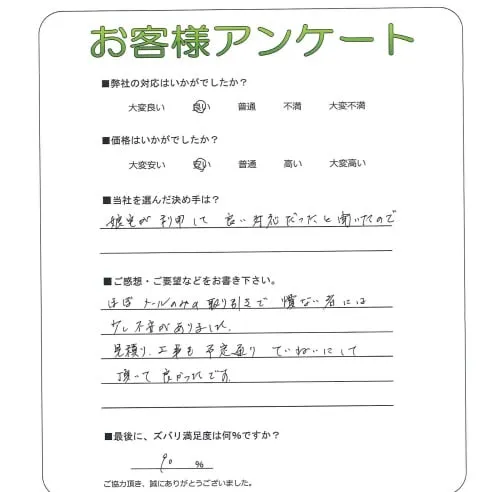 お客様アンケート
■弊社の対応はいかがでしたか?
大変良い 良い 普通 不満 大変不満
■価格はいかがでしたか?
大変安い 安い 普通 高い 大変高い
■当社を選んだ決め手は?
娘宅が利用して良い対応だったと聞いたので
■ご感想・ご要望などをお書き下さい。
ほぼメールのみの取り引きで慣ない者には
少し不安がありました。
見積り、工事も予定通りていねいにして
頂いて良かったです。
■最後に、ズバリ満足度は何%ですか?
90 %
ご協力頂き、誠にありがとうございました。